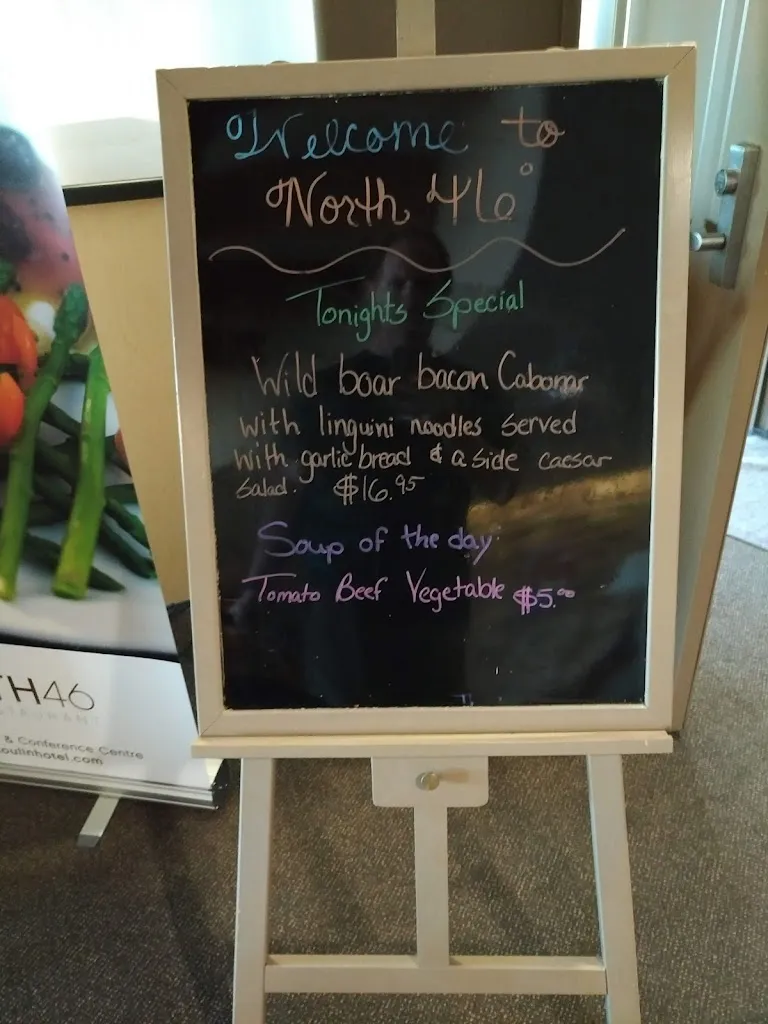 Welcome to
North 46°
Tonights Special
Wild boar bacon Cabonar
with linguini noodles served
with garlic bread & a side caesar
salad. $16.95
Soup of the day
Tomato Beef Vegetable $5.00
TH46
& Conference Centre
oulinhotel.com